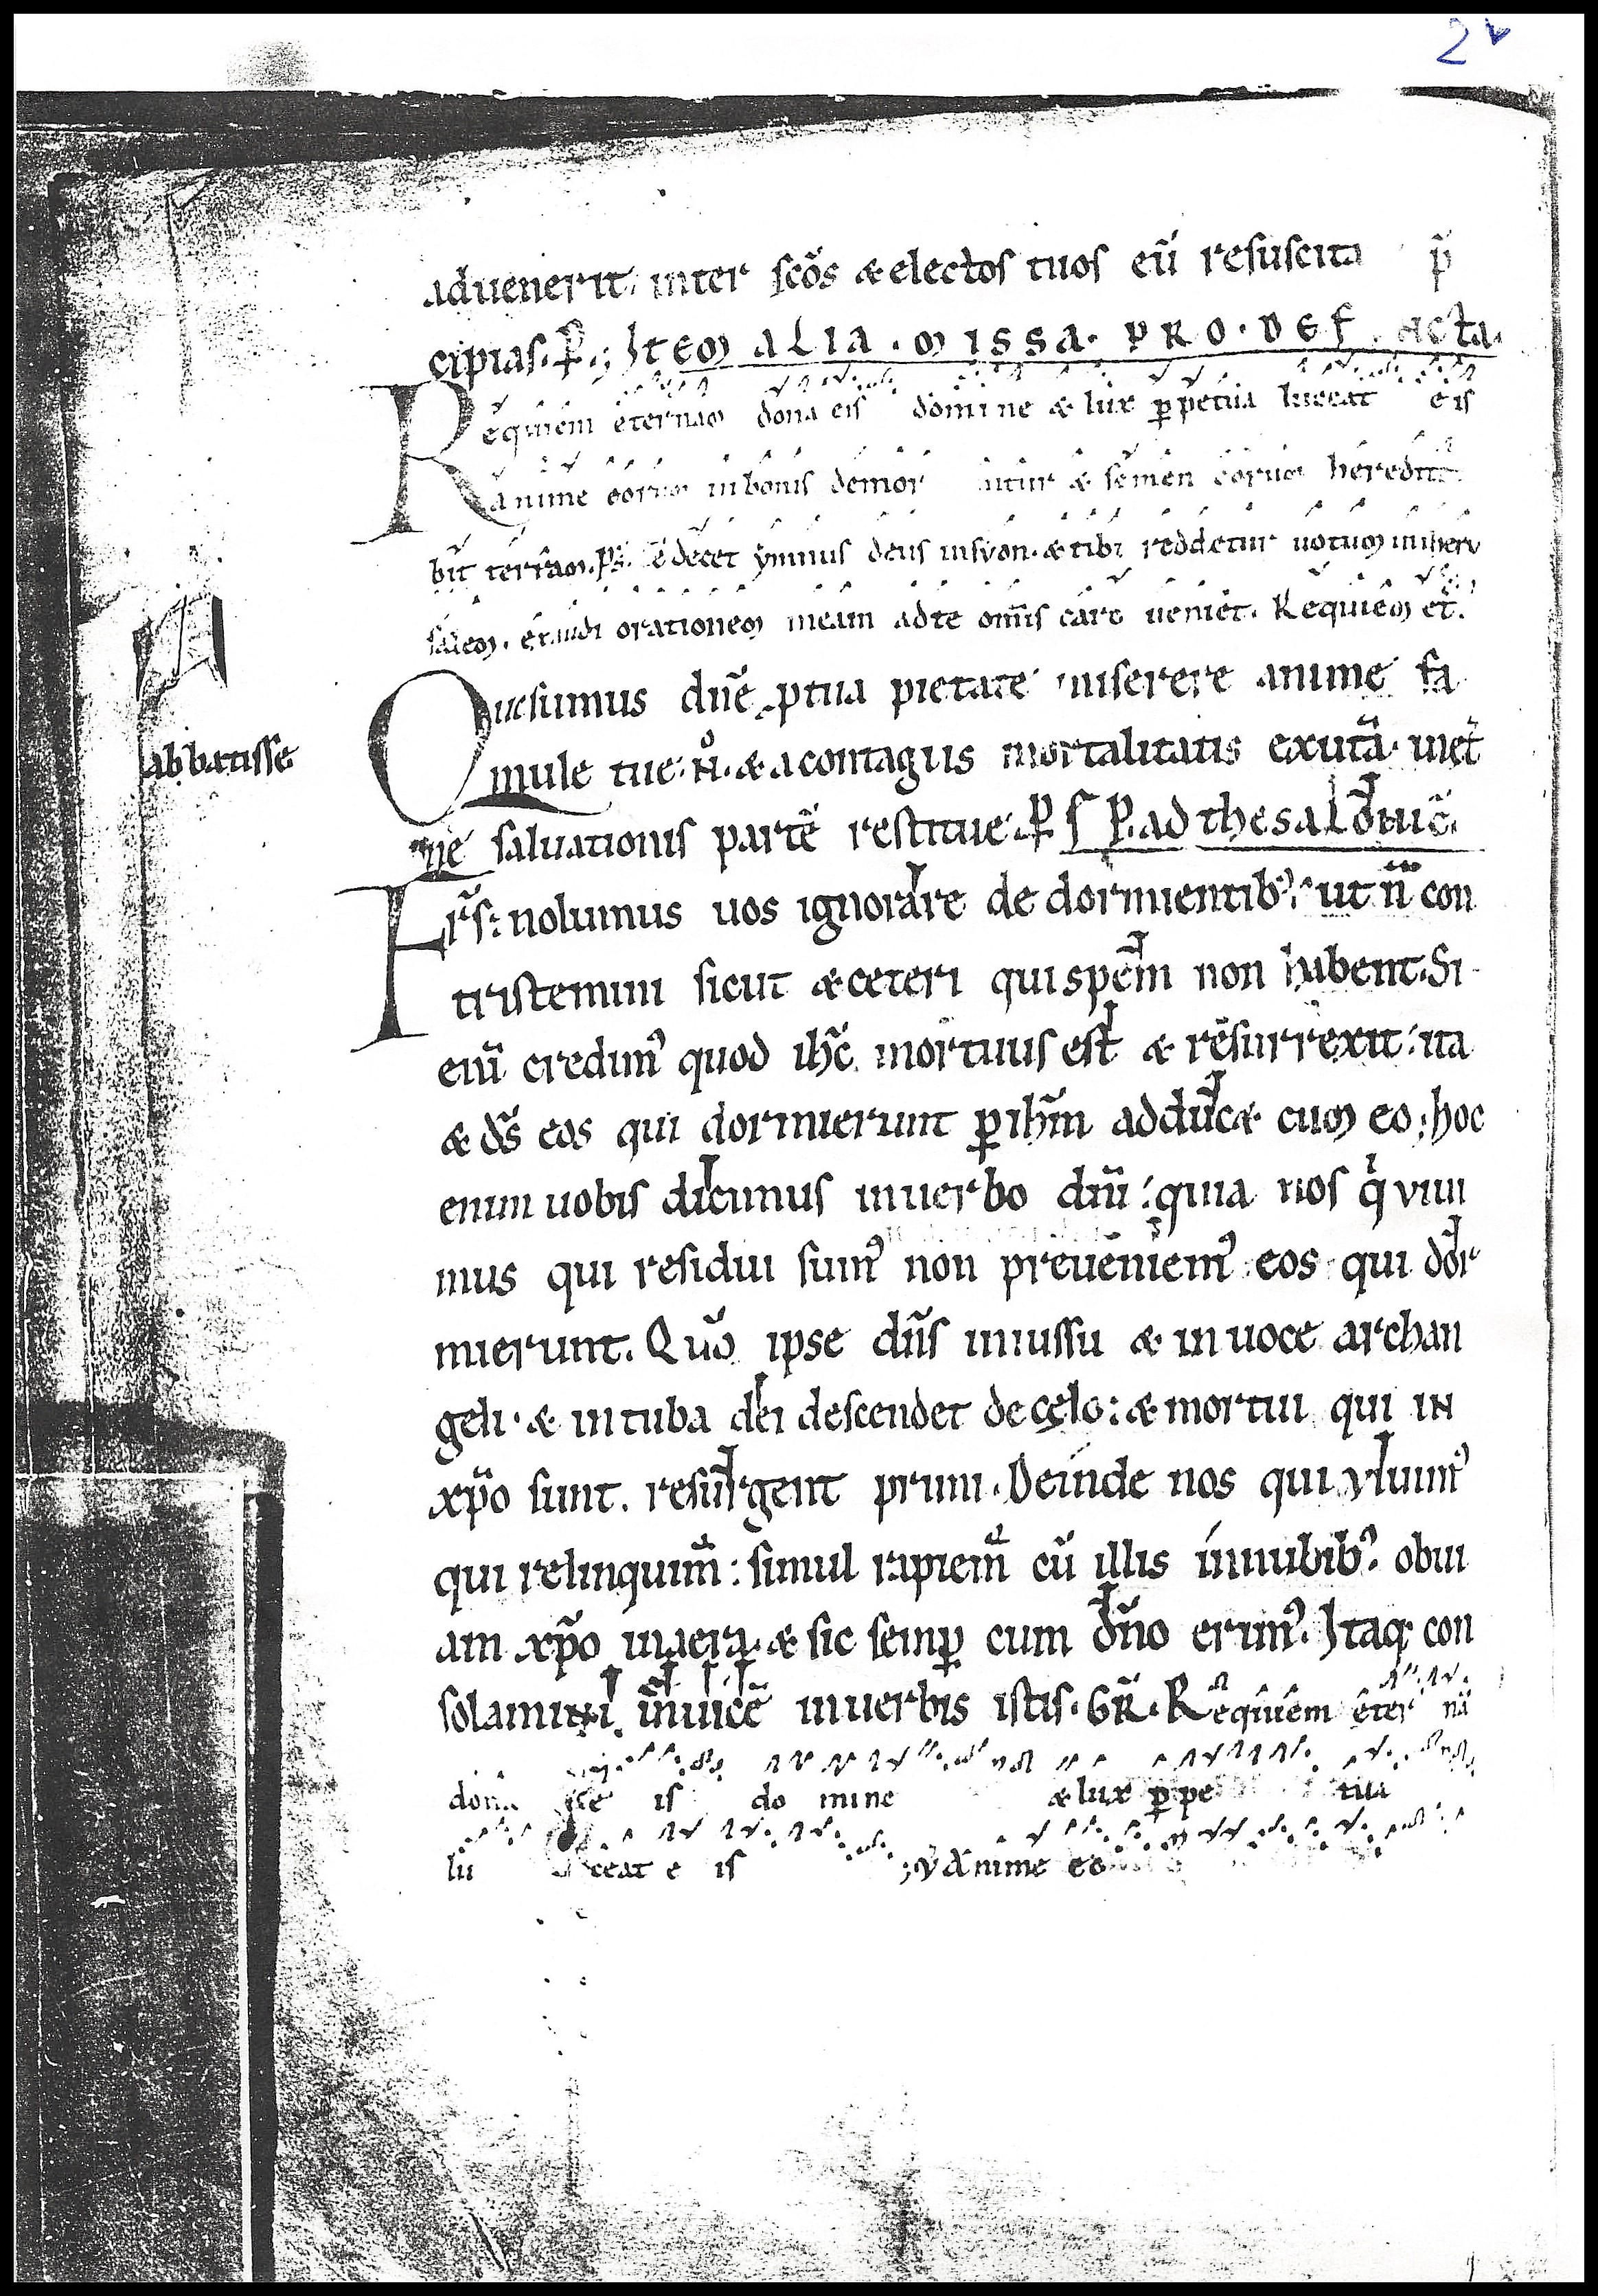 2v
aduenerit. inter scōs & electos tuos eū resuscita p̄
cipias. P̱. Item alia. missa. pro. def. acta.
Requiem eternam dona eis domine & lux ꝑpetua luceat eis
anime eorum inbonis demor untur & semen eorum heredita
bīt terram. ps̄. Te decet ymnus deus insyon. & tibi reddetur uotum iniheru
salem. exaudi orationem meam adte om̄is caro ueniet. Requiem et̄.
Quesumus dn̄e ꝓtua pietate miserere anime fa
mule tue. N̊. & acontagiis mortalitatis exutā. in et̄
abbatisse
ne saluationis partē restitue. P̱ s P̱. ad thesalonic̄.
Fr̄s: nolumus uos ignorare de dormientibꝰ. ut n̄ con
tristemini sicut & ceteri qui spem non habent. Si
enī credimꝰ quod ih̄c mortuus est & resurrexit: ita
& ds̄ eos qui dormierunt ꝑ ih̄m adduc& cum eo. hoc
enim uobis dicimus inuerbo dn̄i: quia nos qͥ viui
mus qui residui sumꝰ non preueniemꝰ eos qui dor
mierunt. Qūo ipse dn̄s iniussu & in uoce archan
geli. & intuba dei descendet de cęlo: & mortui qui in
xp̄o sunt. resurgent primi. Deinde nos qui yiuimꝰ
qui relinquim̄: simul rapiem̄ cū illis innubibꝰ. obui
am xp̄o inaera. & sic semꝑ cum dn̄o erimꝰ. Itaqꝫ con
solamini inuicē inuerbis istis. GR̄. Requiem eter nā
dona e is do mine & lux ꝑpe tua
lu ceat e is ; v Anime eo